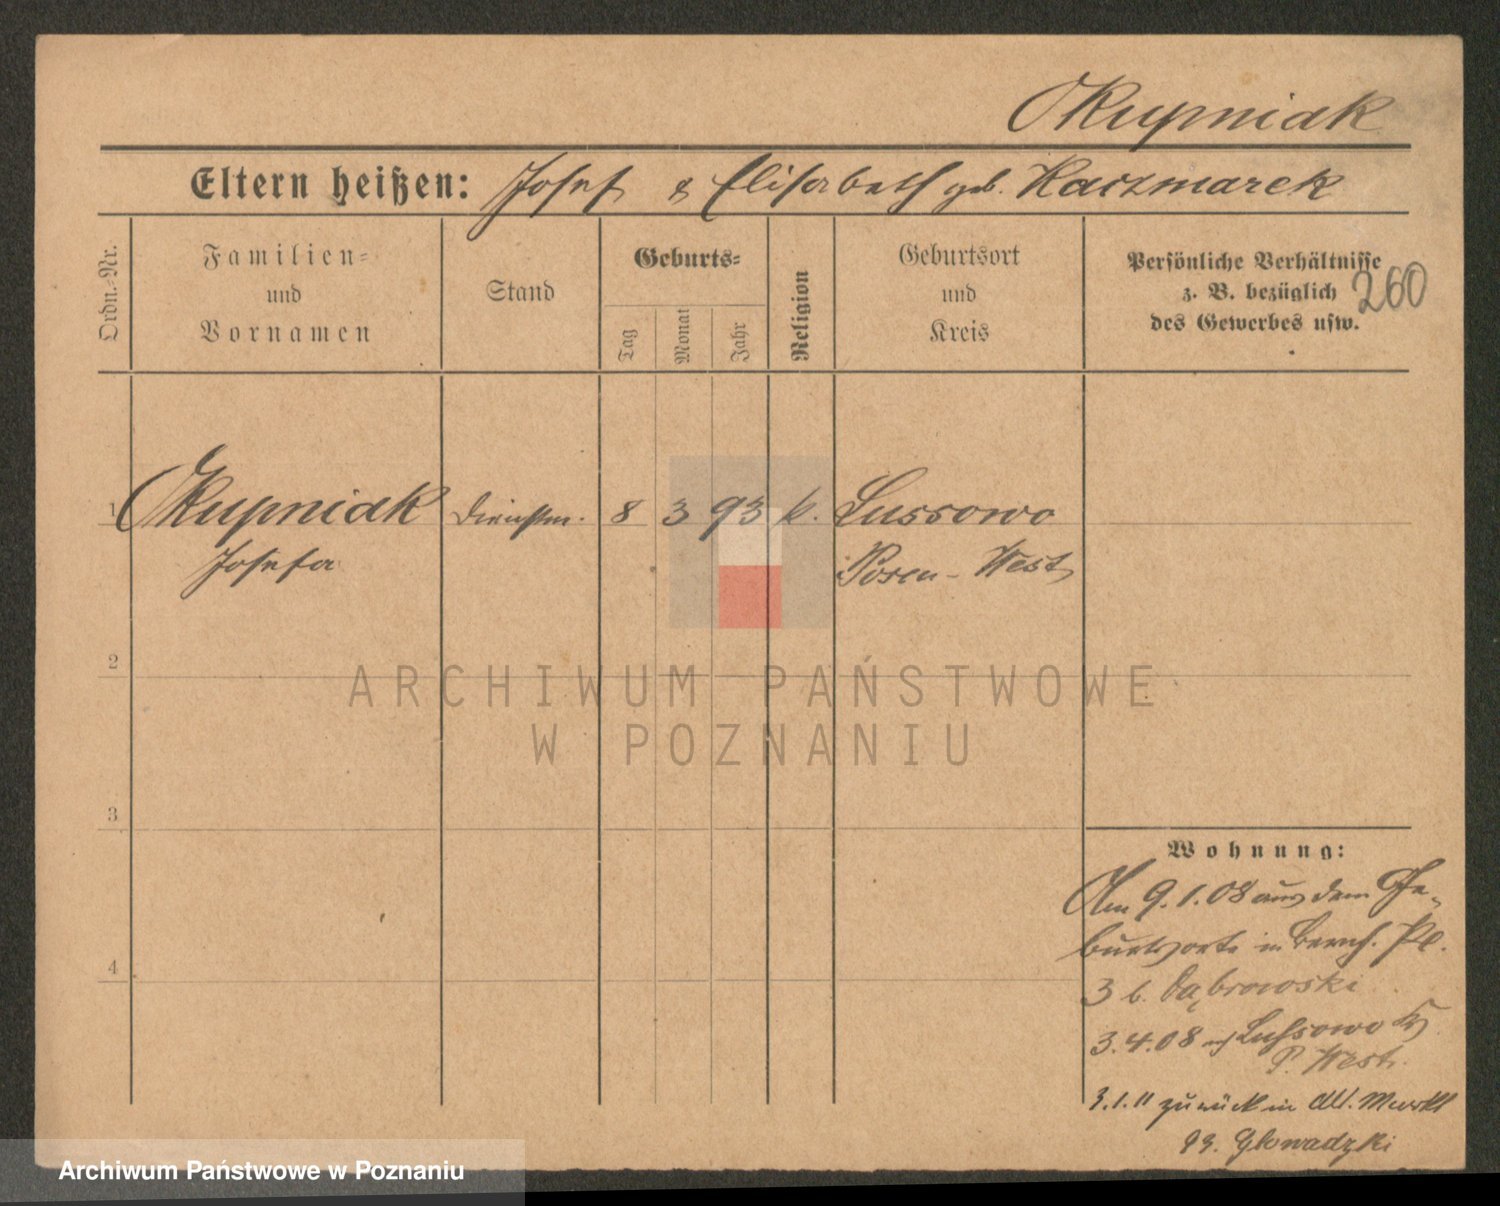 Okupniak
Eltern heißen: Josef & Elisabeth geb. Kaczmarek
Ordn.-Nr.
Familien-
und
Vornamen
Stand
Geburts-
Tag
Monat
Jahr
Religion
Geburtsort
und
Kreis
Persönliche Verhältnisse
z. B. bezüglich
des Gewerbes usw.
260
1 Okupniak Dienstm. 8 3 93 k. Lussowo
Josefa Posen-West
2
3
4
Wohnung:
Am 9.1.08 aus dem Ge-
burtsorte in Bernh. Pl.
3 b. Dąbrowski
3.4.08 Lussowo
P. West.
3.1.11 zurück in Alt. Markt
Glowadzki
ARCHIWUM PAŃSTWOWE
W POZNANIU
Archiwum Państwowe w Poznaniu